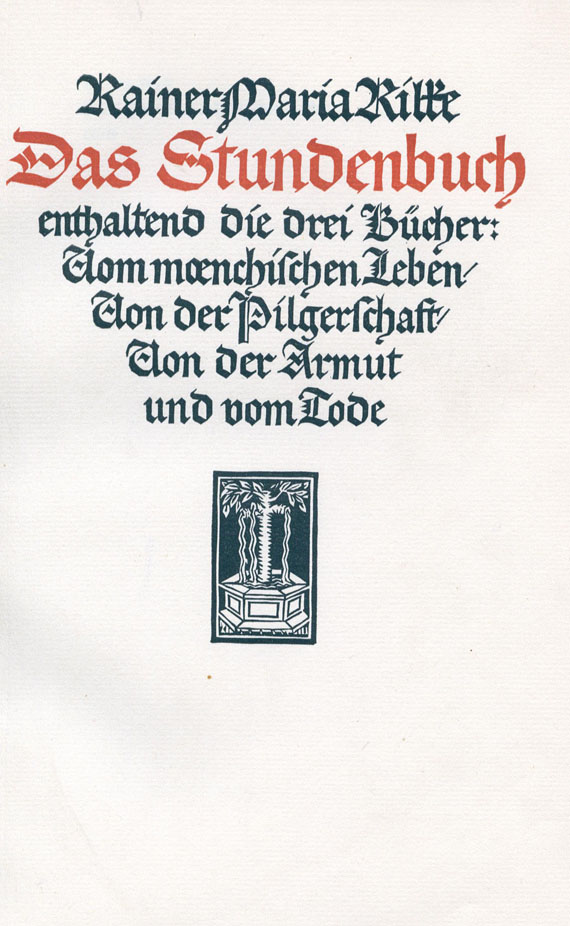 Rainer Maria Rilke
Das Stundenbuch
enthaltend die drei Bücher:
Vom mœnchiſchen Leben/
Von der Pilgerſchaft/
Von der Armut
und vom Tode